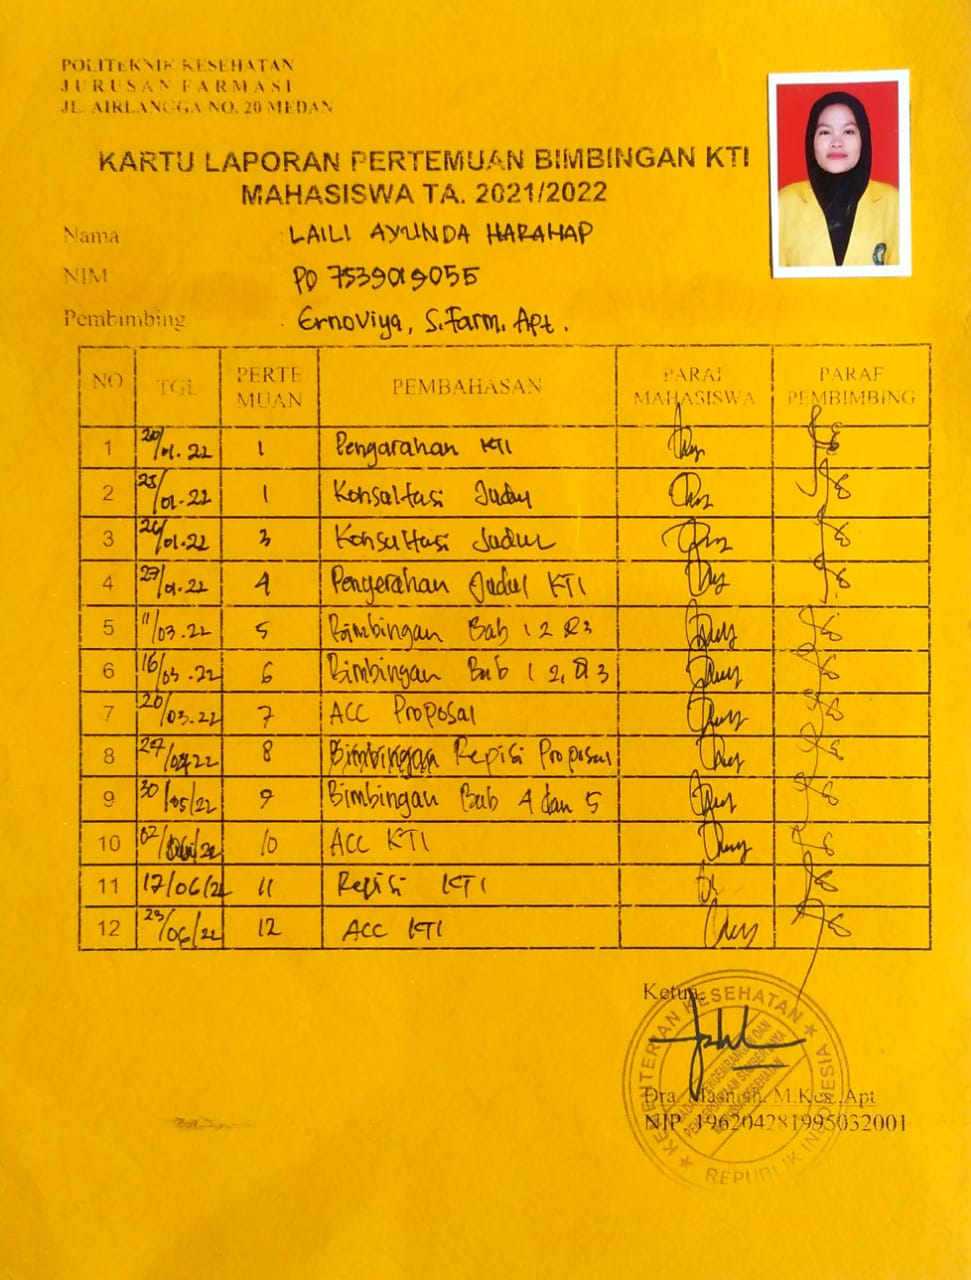 POLITEKNIK KESEHATAN
JURUSAN FARMASI
JL. AIRLANGGA NO. 20 MEDAN
KARTU LAPORAN PERTEMUAN BIMBINGAN KTI
MAHASISWA TA. 2021/2022
Nama : LAILI AYUNDA HARAHAP
NIM PO 7539019055
Pembimbing : Ernoviya, S.Farm, Apt.
NO TGL PERTE MUAN PEMBAHASAN PARAF MAHASISWA PARAF PEMBIMBING
1 20/01.22 1 Pengarahan KTI
2 25/01.22 1 Konsultasi Judul
3 26/01.22 3 Konsultasi Judul
4 27/01.22 4 Pengerahan Judul KTI
5 11/03.22 5 Bimbingan Bab 1 2 & 3
6 16/03.22 6 Bimbingan Bab 1 2, & 3
7 20/03.22 7 ACC Proposal
8 8 Bimbingan Repisi Proposal
9 30/05/22 9 Bimbingan Bab 4 dan 5
10 10 ACC KTI
11 17/06/22 11 Repisi KTI
12 23/06/22 12 ACC KTI
Ketua,
KEMENTERIAN KESEHATAN
BADAN PENGEMBANGAN DAN
PEMBERDAYAAN SUMBER DAYA
MANUSIA KESEHATAN
REPUBLIK INDONESIA
Dra. Masniah, M.Kes, Apt
NIP. 196204281995032001